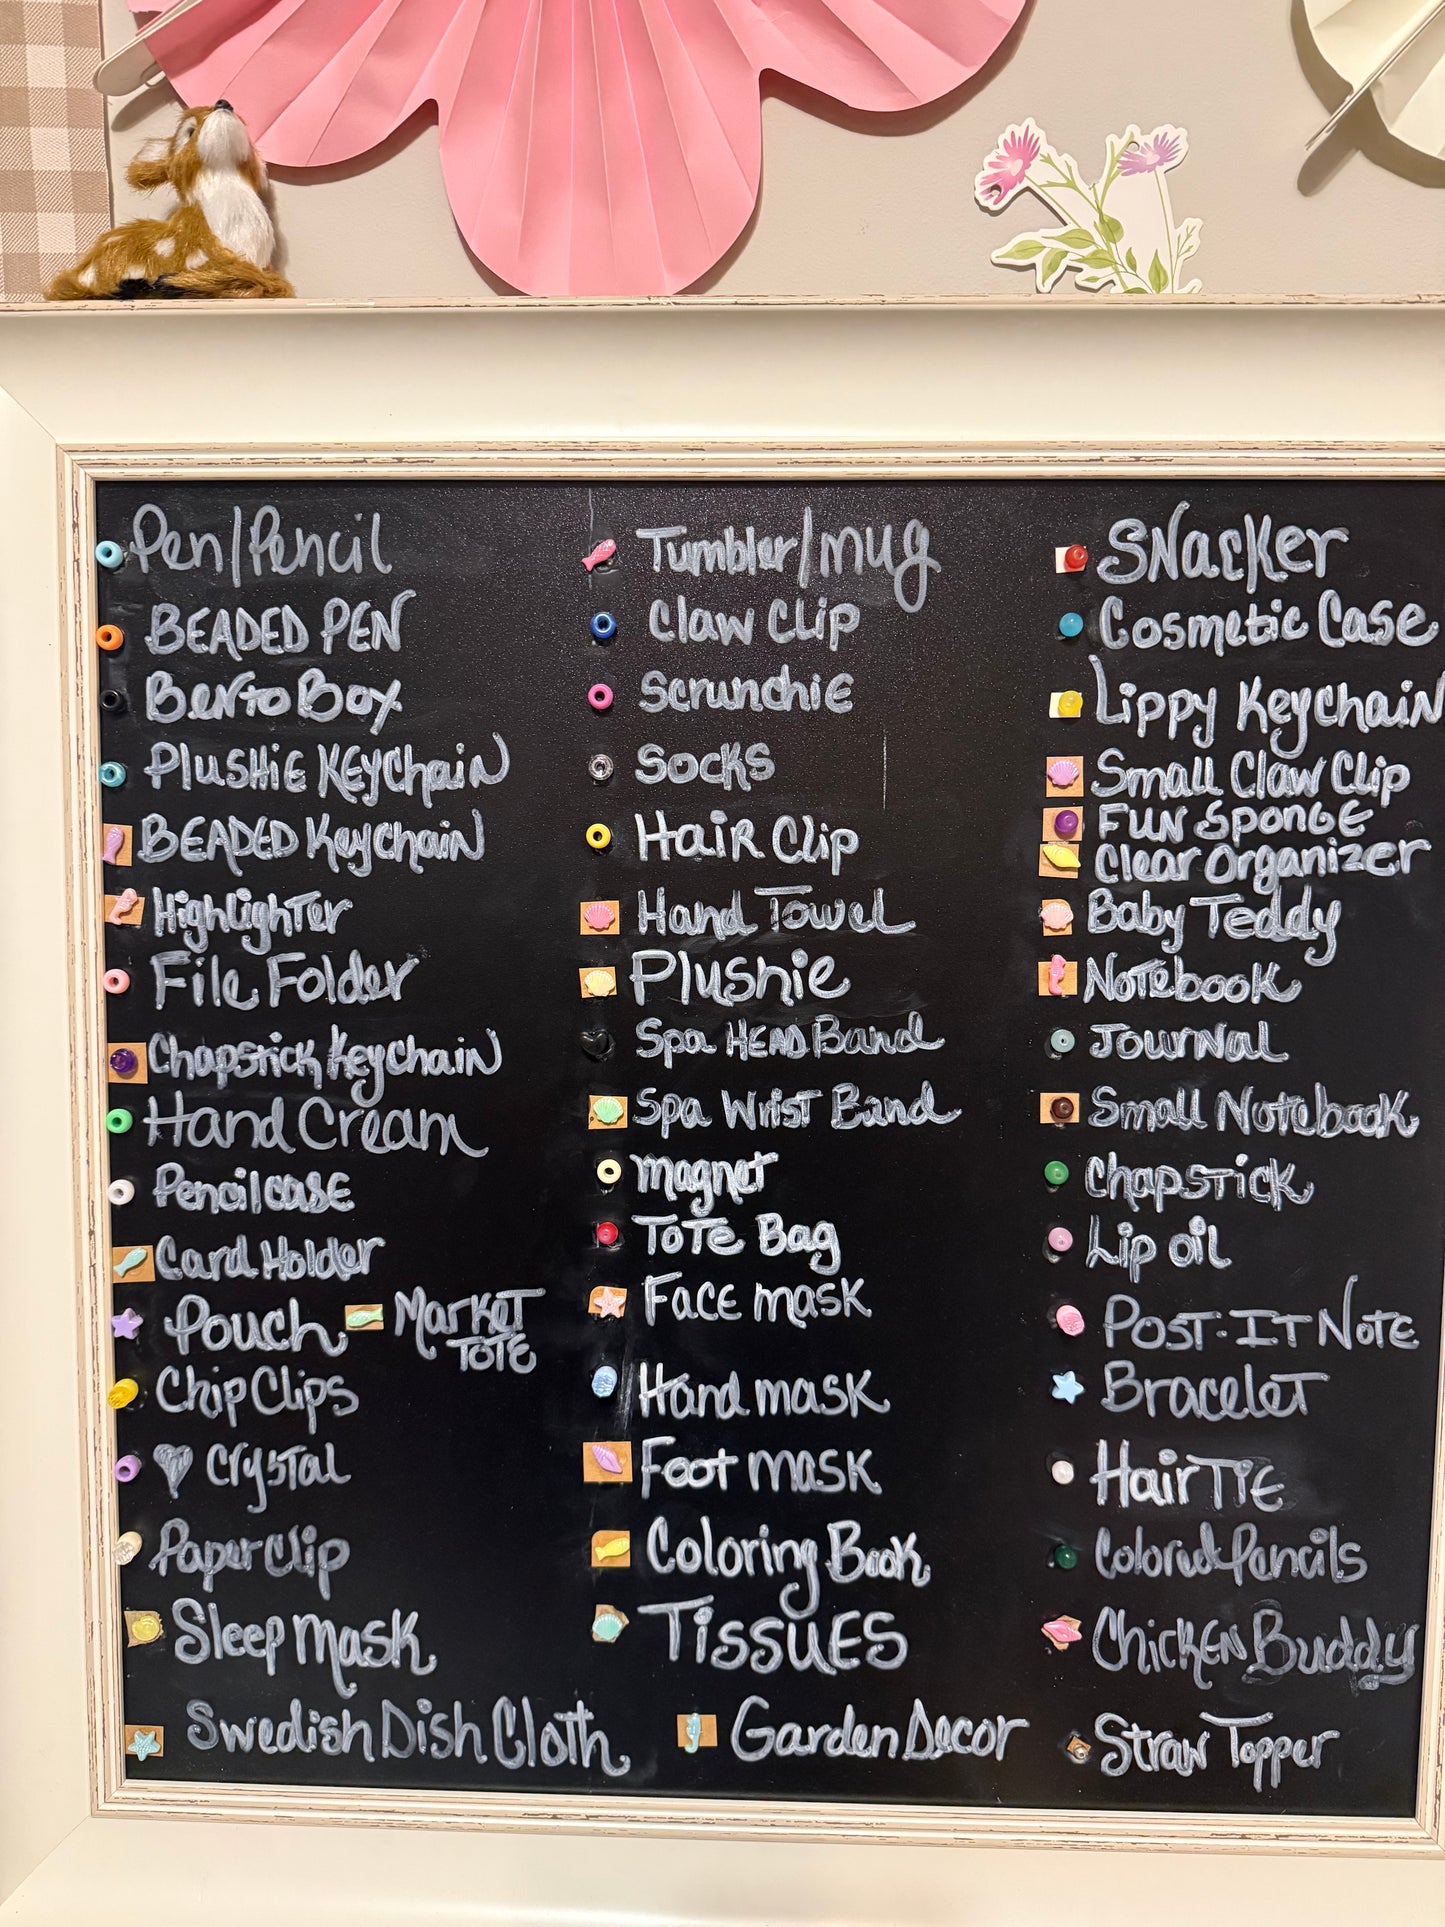 Pen/Pencil
BEADED PEN
Bento Box
Plushie Keychain
BEADED Keychain
Highlighter
File Folder
Chapstick Keychain
Hand Cream
Pencil case
Card Holder
Pouch
Market
Tote
Chip Clips
Crystal
Paper Clip
Sleep Mask
Swedish Dish Cloth
Tumbler/mug
Claw Clip
Scrunchie
Socks
Hair Clip
Hand Towel
Plushie
Spa Head Band
Spa Wrist Band
magnet
Tote Bag
Face mask
Hand mask
Foot mask
Coloring Book
TISSUES
Garden Decor
Snacker
Cosmetic Case
Lippy Keychain
Small Claw Clip
Fun Sponge
Clear Organizer
Baby Teddy
Notebook
Journal
Small Notebook
Chapstick
Lip oil
Post-It Note
Bracelet
Hair Tie
Colored Pencils
Chicken Buddy
Straw Topper